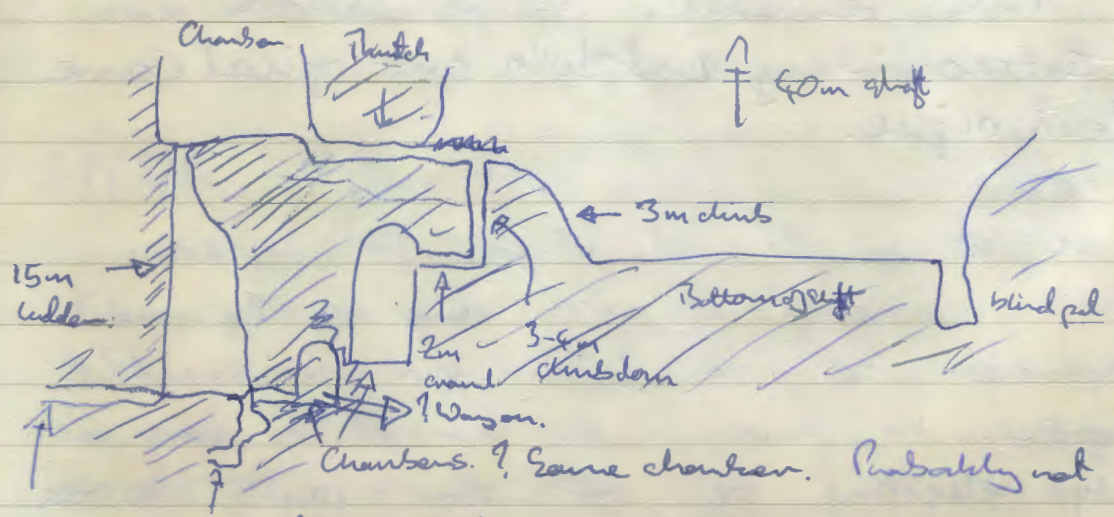 Chamber
Thrutch
40m shaft
3m climb
15m
ladder.
Bottom of shaft
blind pot
2m
crawl.
3-4m
climb down
? Way on.
Chambers. ? Same chamber. Probably not
?